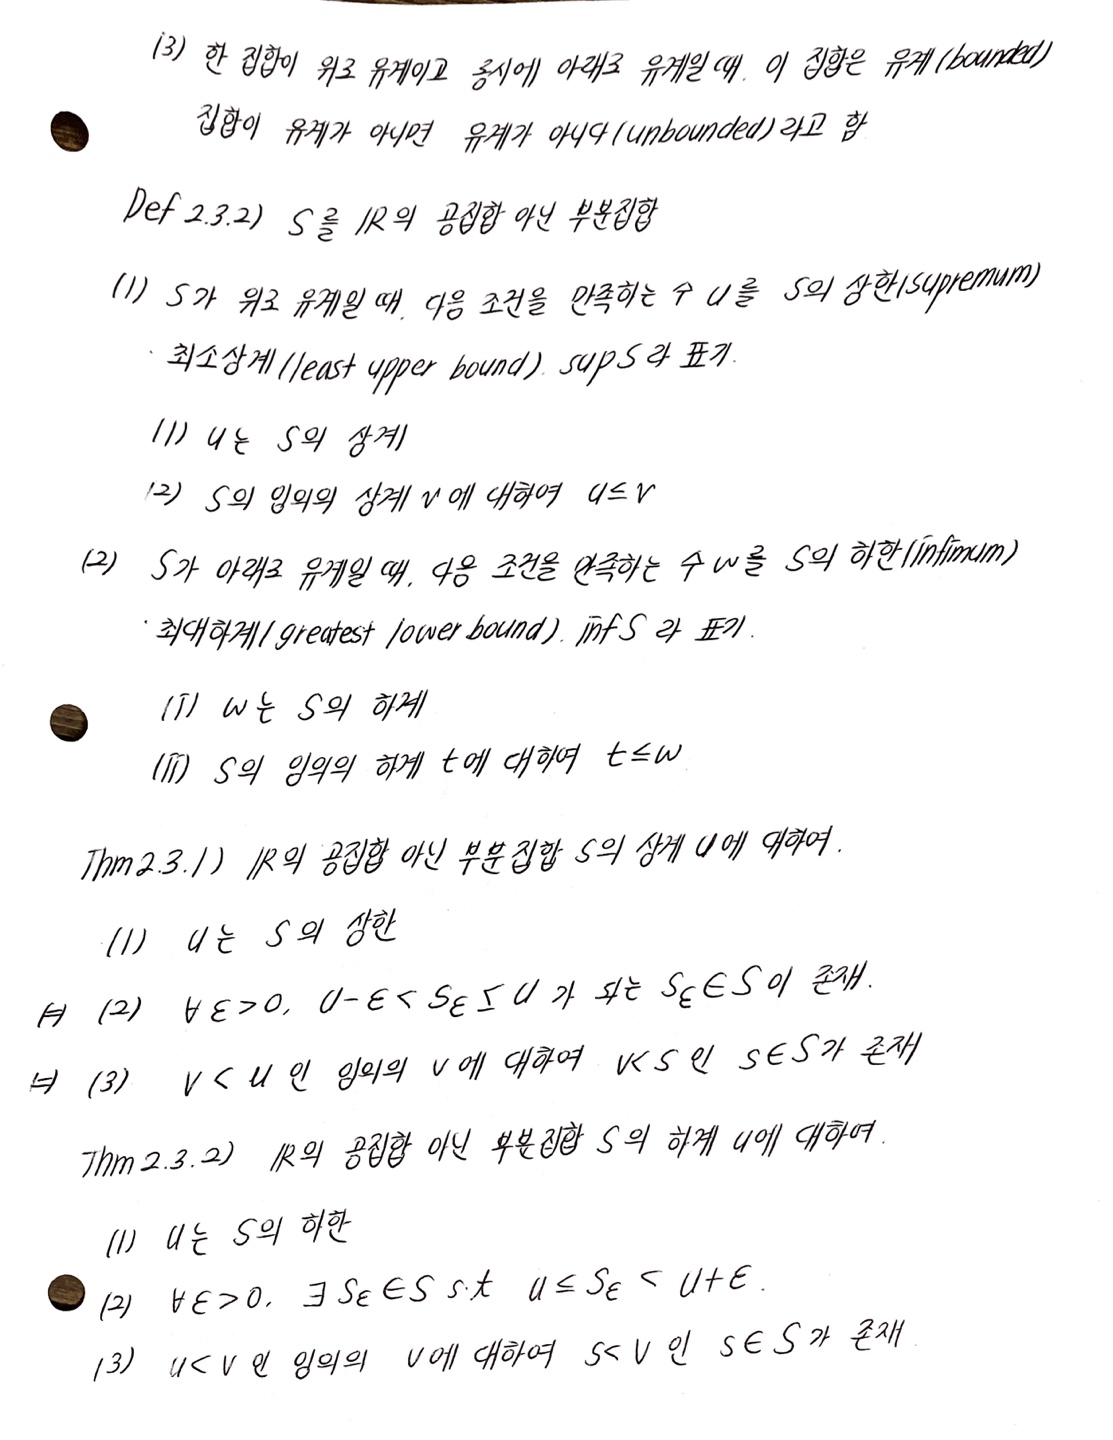 (3) 한 집합이 위로 유계이고 동시에 아래로 유계일 때. 이 집합은 유계(bounded)
집합이 유계가 아니면 유계가 아니다(unbounded)라고 함
Def 2.3.2) S를 ℝ의 공집합 아닌 부분집합
(1) S가 위로 유계일 때. 다음 조건을 만족하는 수 u를 S의 상한(supremum)
· 최소상계(least upper bound). sup S라 표기.
(1) u는 S의 상계
(2) S의 임의의 상계 v에 대하여 u≤v
(2) S가 아래로 유계일 때. 다음 조건을 만족하는 수 w를 S의 하한(infimum)
· 최대하계(greatest lower bound). inf S라 표기.
(i) w는 S의 하계
(ii) S의 임의의 하계 t에 대하여 t≤w
Thm 2.3.1) ℝ의 공집합 아닌 부분집합 S의 상계 u에 대하여.
(1) u는 S의 상한
⇔ (2) ∀ε>0, u-ε < Sε ≤ u가 되는 Sε∈S이 존재.
⇔ (3) v<u인 임의의 v에 대하여 v<s인 s∈S가 존재
Thm 2.3.2) ℝ의 공집합 아닌 부분집합 S의 하계 u에 대하여.
(1) u는 S의 하한
(2) ∀ε>0, ∃Sε∈S s.t u ≤ Sε < u+ε.
(3) u<v인 임의의 v에 대하여 s<v인 s∈S가 존재.